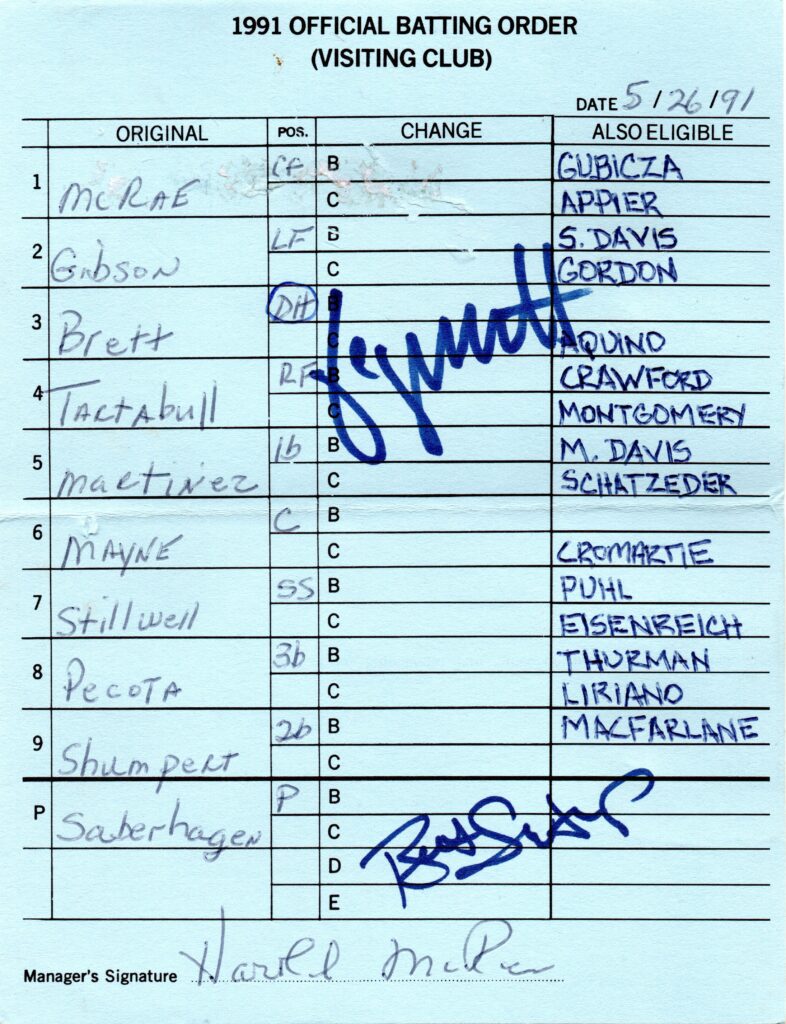 1991 OFFICIAL BATTING ORDER
(VISITING CLUB)
DATE 5/26/91
ORIGINAL POS. CHANGE ALSO ELIGIBLE
1 CF B GUBICZA
McRAE C APPIER
2 LF B S. DAVIS
Gibson C GORDON
3 DH B
Brett C AQUINO
4 RF B CRAWFORD
TARTAbull C MONTGOMERY
5 1b B M. DAVIS
MARTINEZ C SCHATZEDER
6 C B
MAYNE C CROMARTIE
7 SS B PUHL
Stillwell C EISENREICH
8 3b B THURMAN
PECOTA C LIRIANO
9 2b B MACFARLANE
Shumpert C
P P B
Saberhagen C
D
E
Manager's Signature Harold McRae